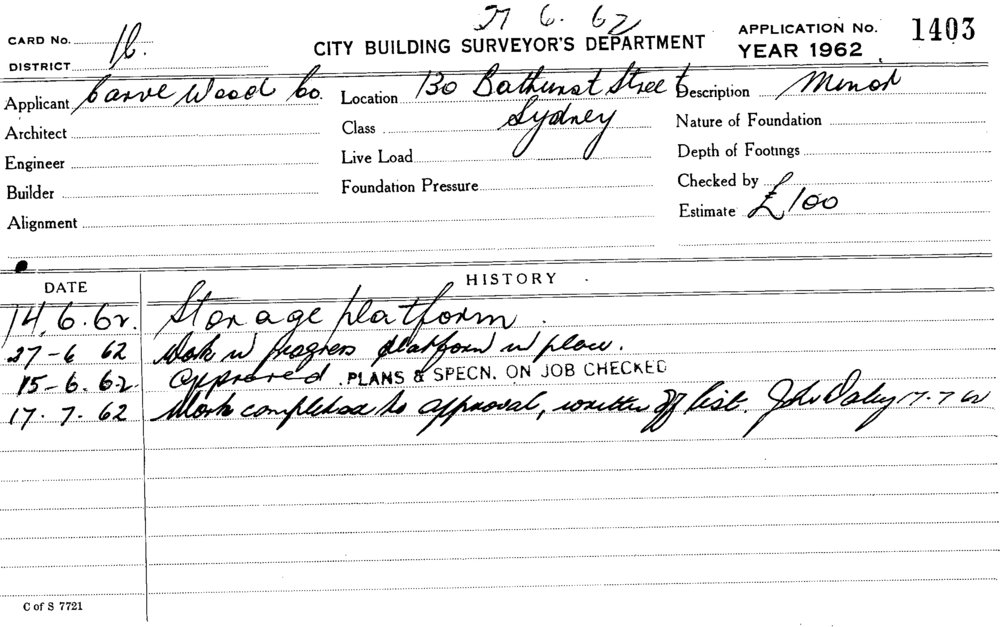 27 6. 62
CARD No. 16.
DISTRICT
CITY BUILDING SURVEYOR'S DEPARTMENT
APPLICATION No. 1403
YEAR 1962
Applicant Carve Wood Co.
Location 130 Bathurst Street
Sydney
Description Minor
Architect
Class
Nature of Foundation
Engineer
Live Load
Depth of Footings
Builder
Foundation Pressure
Checked by
Alignment
Estimate £100
DATE
HISTORY
14.6.62. Storage platform.
27-6 62 Work in progress platform in place.
15-6.62. Approved. PLANS & SPECN. ON JOB CHECKED
17.7.62 Work completed to approval, written off list. John Daley 17.7.62
C of S 7721